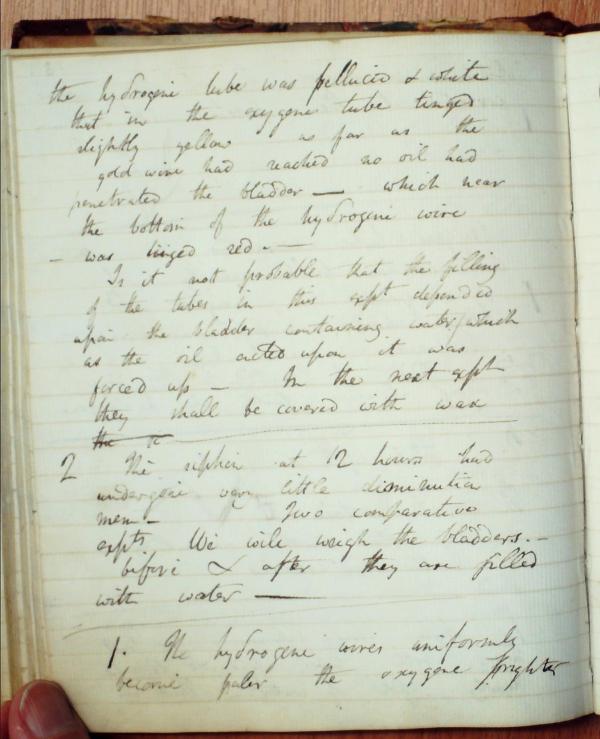 the hydrogene tube was pellucid & white
that in the oxygene tube tinged
slightly yellow as far as the
gold wire had reached no oil had
penetrated the bladder — which near
the bottom of the hydrogene wire
— was tinged red. —
Is it not probable that the filling
of the tubes in this expt depended
upon the bladder containing water, which
as the oil acted upon it was
forced up — In the next expt
they shall be covered with wax
the
2 The siphon at 12 hours had
undergone very little diminution
mem. — Two comparative
expts We will weigh the bladders. —
before & after they are filled
with water —
1. The hydrogene wires uniformly
become paler the oxygene brighter